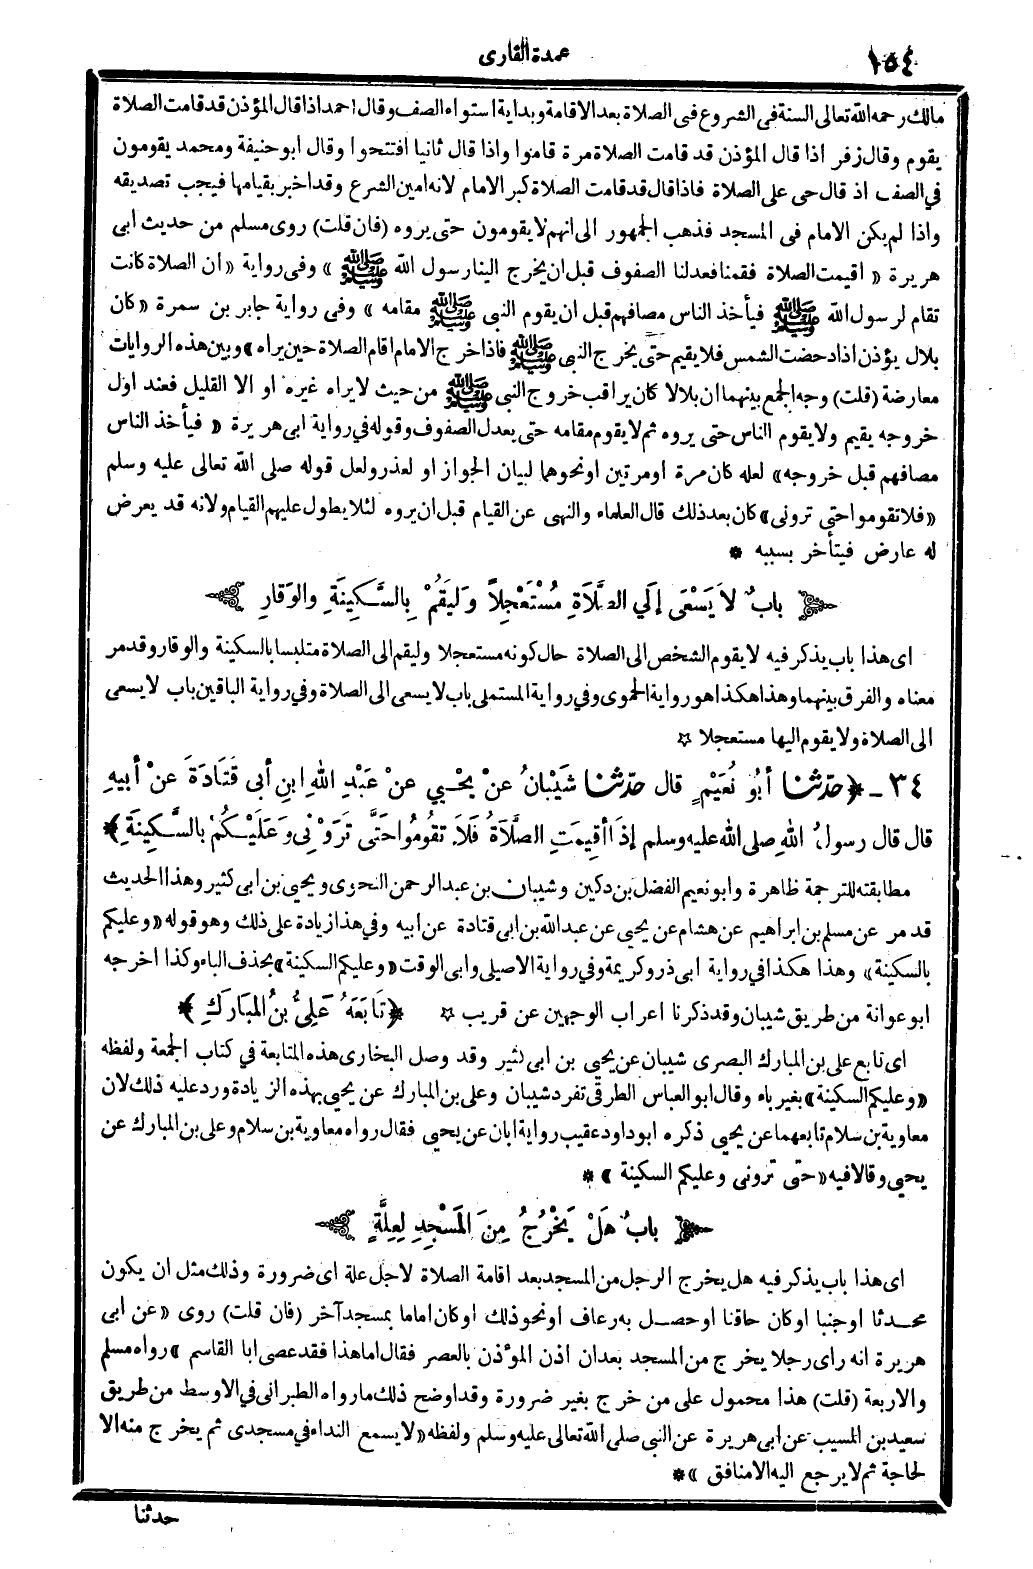 ١٥٤
عمدة القارى
مالك رحمه الله تعالى السنة فى الشروع فى الصلاة بعد الاقامة وبداية استواء الصف وقال احمد اذا قال المؤذن قد قامت الصلاة
يقوم وقال زفر اذا قال المؤذن قد قامت الصلاة مرة قاموا واذا قال ثانيا افتتحوا وقال ابو حنيفة ومحمد يقومون
في الصف اذ قال حى على الصلاة فاذا قال قد قامت الصلاة كبر الامام لانه امين الشرع وقد اخبر بقيامها فيجب تصديقه
واذا لم يكن الامام فى المسجد فذهب الجمهور الى انهم لا يقومون حتى يروه (فان قلت) روى مسلم من حديث ابى
هريرة « اقيمت الصلاة فقمنا فعدلنا الصفوف قبل ان يخرج الينا رسول الله ﷺ » وفى رواية « ان الصلاة كانت
تقام لرسول الله ﷺ فيأخذ الناس مصافهم قبل ان يقوم النبى ﷺ مقامه » وفى رواية جابر بن سمرة « كان
بلال يؤذن اذا دحضت الشمس فلا يقيم حتى يخرج النبى ﷺ فاذا خرج الامام اقام الصلاة حين يراه » وبين هذه الروايات
معارضة (قلت) وجه الجمع بينهما ان بلالا كان يراقب خروج النبى ﷺ من حيث لا يراه غيره او الا القليل فعند اول
خروجه يقيم ولا يقوم الناس حتى يروه ثم لا يقوم مقامه حتى يعدل الصفوف وقوله في رواية ابى هريرة « فيأخذ الناس
مصافهم قبل خروجه » لعله كان مرة او مرتين او نحوهما لبيان الجواز او لعذر ولعل قوله صلى الله تعالى عليه وسلم
« فلا تقوموا حتى ترونى » كان بعد ذلك قال العلماء والنهى عن القيام قبل ان يروه لئلا يطول عليهم القيام ولانه قد يعرض
له عارض فيتأخر بسببه *
﴿ بابٌ لاَ يَسْعَى إِلَي الصَّلَاةِ مُسْتَعْجِلاً وَلْيَقُمْ بِالسَّكِينَةِ والوَقَارِ ﴾
اى هذا باب يذكر فيه لا يقوم الشخص الى الصلاة حال كونه مستعجلا وليقم الى الصلاة متلبسا بالسكينة والوقار وقد مر
معناه والفرق بينهما وهذا هكذا هو رواية الحموى وفي رواية المستملى باب لا يسعى الى الصلاة وفي رواية الباقين باب لا يسعى
الى الصلاة ولا يقوم اليها مستعجلا ☆
٣٤ - ﴿ حدّثنا أبُو نُعَيْمٍ قال حدّثنا شَيْبَانُ عنْ يَحْيي عنْ عَبْدِ اللهِ ابنِ أبى قَتَادَةَ عنْ أبيهِ
قال قال رسولُ اللهِ صلى الله عليه وسلم إذَا أقِيمَتِ الصَّلَاةُ فَلاَ تقُومُوا حَتَّى تَرَوْنِى وَعَلَيْكُمْ بالسَّكِينَةِ ﴾
مطابقته للترجمة ظاهرة وابو نعيم الفضل بن دكين وشيبان بن عبد الرحمن النحوى ويحيى بن ابى كثير وهذا الحديث
قد مر عن مسلم بن ابراهيم عن هشام عن يحيى عن عبد الله بن ابى قتادة عن ابيه وفي هذا زيادة على ذلك وهو قوله « وعليكم
بالسكينة » وهذا هكذا في رواية ابى ذر وكريمة وفي رواية الاصيلى وابى الوقت « وعليكم السكينة » بحذف الباء وكذا اخرجه
ابو عوانة من طريق شيبان وقد ذكرنا اعراب الوجهين عن قريب ☆ ﴿ تَابَعَهُ عَلِىُّ بنُ المُبارَكِ ﴾
اى تابع على بن المبارك البصرى شيبان عن يحيى بن ابى كثير وقد وصل البخارى هذه المتابعة في كتاب الجمعة ولفظه
« وعليكم السكينة » بغير باء وقال ابو العباس الطرقى تفرد شيبان وعلى بن المبارك عن يحيى بهذه الزيادة ورد عليه ذلك لان
معاوية بن سلام تابعهما عن يحيى ذكره ابو داود عقيب رواية ابان عن يحيى فقال رواه معاوية بن سلام وعلى بن المبارك عن
يحيى وقالا فيه « حتى ترونى وعليكم السكينة » *
﴿ بابُ هَلْ يَخْرُجُ مِنَ المَسْجِدِ لِعِلَّةٍ ﴾
اى هذا باب يذكر فيه هل يخرج الرجل من المسجد بعد اقامة الصلاة لاجل علة اى ضرورة وذلك مثل ان يكون
محدثا او جنبا او كان حاقنا او حصل به رعاف او نحو ذلك او كان اماما بمسجد آخر (فان قلت) روى « عن ابى
هريرة انه راى رجلا يخرج من المسجد بعد ان اذن المؤذن بالعصر فقال اما هذا فقد عصى ابا القاسم » رواه مسلم
والاربعة (قلت) هذا محمول على من خرج بغير ضرورة وقد اوضح ذلك ما رواه الطبرانى في الاوسط من طريق
سعيد بن المسيب عن ابى هريرة عن النبى صلى الله تعالى عليه وسلم ولفظه « لا يسمع النداء في مسجدى ثم يخرج منه الا
لحاجة ثم لا يرجع اليه الا منافق » *
حدثنا